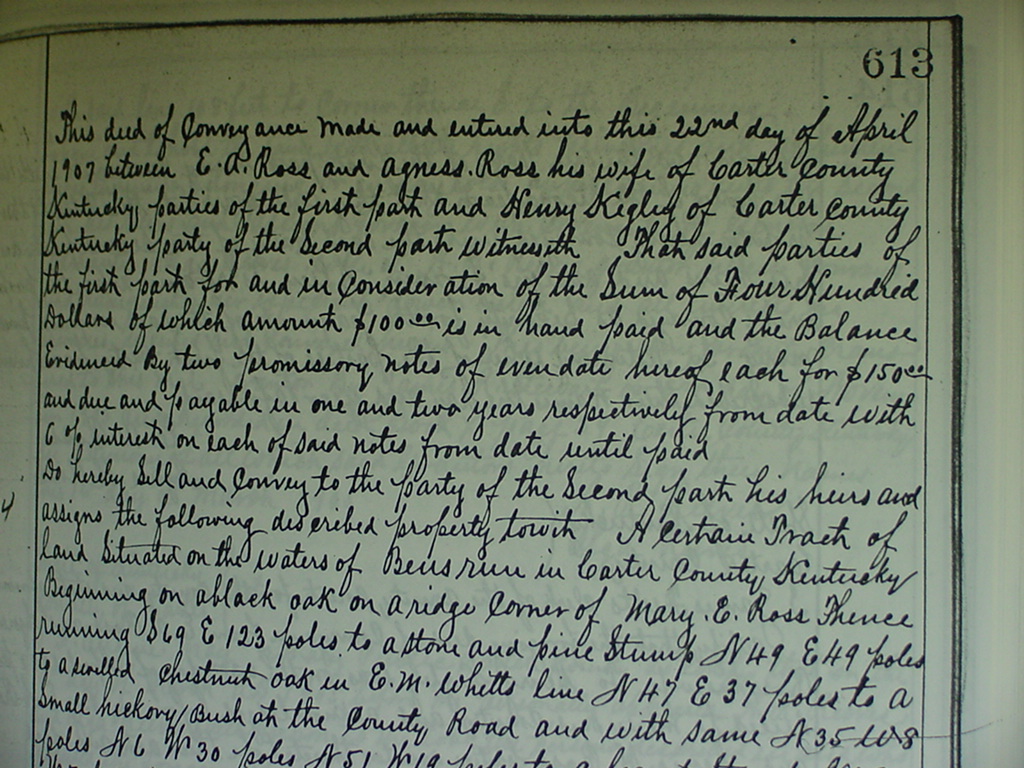 613
This deed of Conveyance made and entered into this 22nd day of April
1907 between E. A. Ross and Agness. Ross his wife of Carter County
Kentucky, parties of the first part and Henry Kegley of Carter County
Kentucky party of the Second part witnesseth That said parties of
the first part for and in Consideration of the Sum of Four Hundred
Dollars of which amount $100.00 is in hand paid and the Balance
Evidenced By two promissory notes of even date hereof each for $150.00
and due and payable in one and two years respectively from date with
6 % interest on each of said notes from date until paid
Do hereby Sell and Convey to the party of the Second part his heirs and
assigns the following described property towit A Certain Tract of
land Situated on the waters of Bens run in Carter County, Kentucky
Beginning on a black oak on a ridge Corner of Mary. E. Ross Thence
running S 69 E 123 poles to a stone and pine Stump N 49 E 49 poles
to a Chestnut oak in E. M. Whitts line N 47 E 37 poles to a
small hickory Bush at the County Road and with same N 35 W 8
poles N 6 W 30 poles N 51 W 19 poles to a